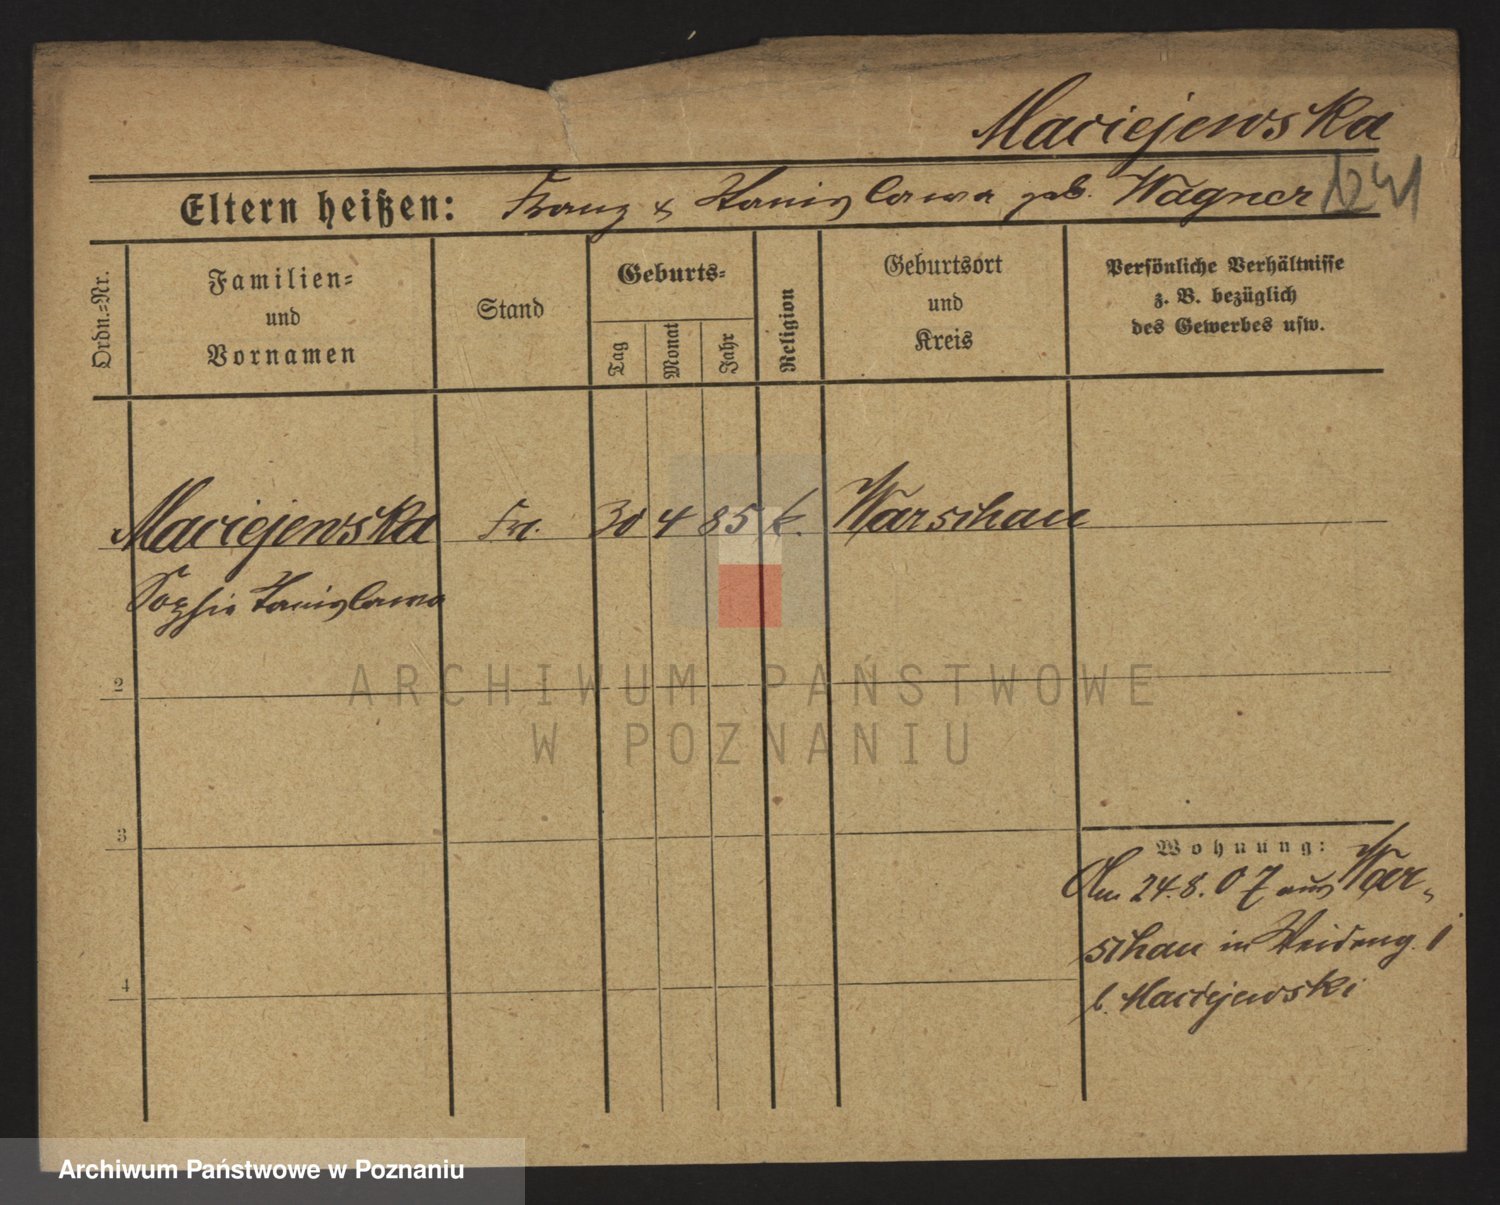 Maciejewska
Eltern heißen: Franz & Stanislawa geb. Wagner
Ordn.-Nr.
Familien-
und
Vornamen
Stand
Geburts-
Tag
Monat
Jahr
Religion
Geburtsort
und
Kreis
Persönliche Verhältnisse
z. B. bezüglich
des Gewerbes usw.
Maciejewska Frl. 30 4 85 k. Warschau
Sophie Stanislawa
2
ARCHIWUM PAŃSTWOWE
W POZNANIU
3
Wohnung:
Am 24.8.07 aus War-
schau in Weideng. 1
b. Maciejewski
4
Archiwum Państwowe w Poznaniu